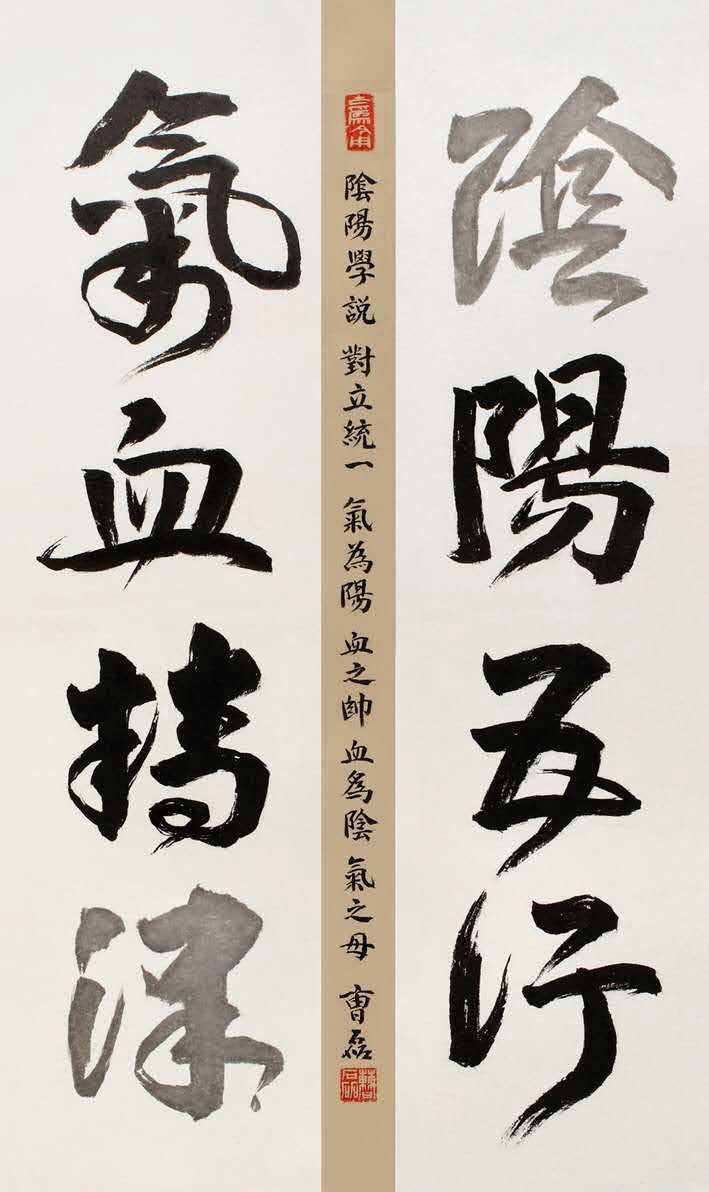 陰陽五行
陰陽學説 對立統一 氣為陽 血之帥 血爲陰 氣之母 曹磊
氣血精津